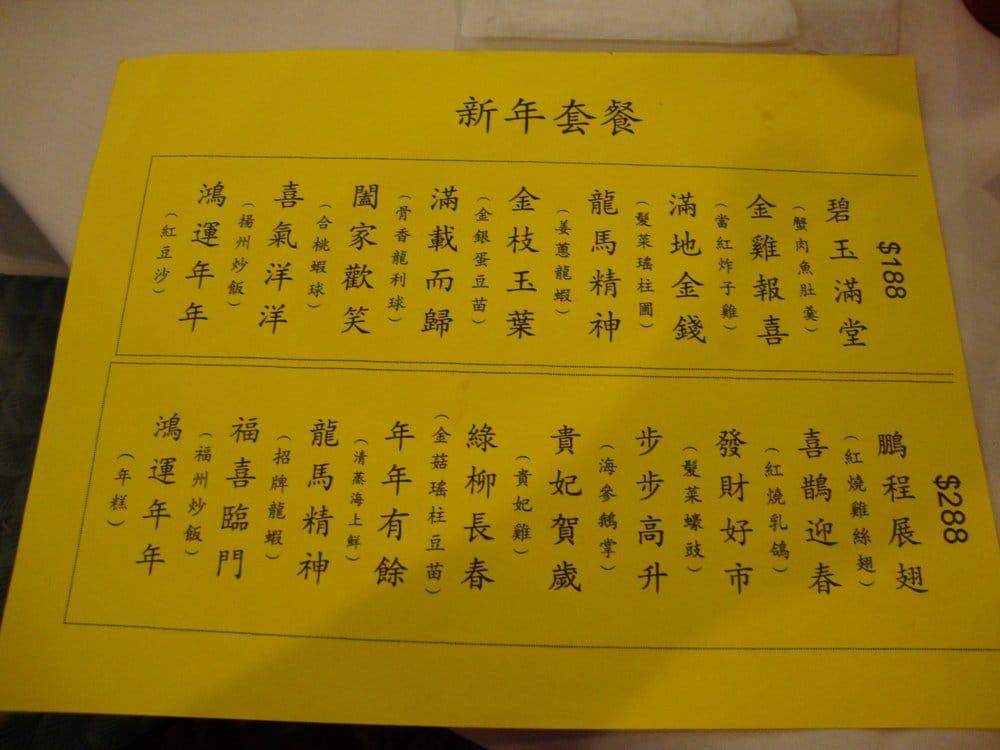 新年套餐
$188
碧玉滿堂
(蟹肉魚肚羹)
金雞報喜
(當紅炸子雞)
滿地金錢
(髮菜瑤柱圃)
龍馬精神
(姜蔥龍蝦)
金枝玉葉
(金銀蛋豆苗)
滿載而歸
(骨香龍利球)
闔家歡笑
(合桃蝦球)
喜氣洋洋
(揚州炒飯)
鴻運年年
(紅豆沙)
$288
鵬程展翅
(紅燒雞絲翅)
喜鵲迎春
(紅燒乳鴿)
發財好市
(髮菜蠔豉)
步步高升
(海參鵝掌)
貴妃賀歲
(貴妃雞)
綠柳長春
(金菇瑤柱豆苗)
年年有餘
(清蒸海上鮮)
龍馬精神
(招牌龍蝦)
福喜臨門
(福州炒飯)
鴻運年年
(年糕)